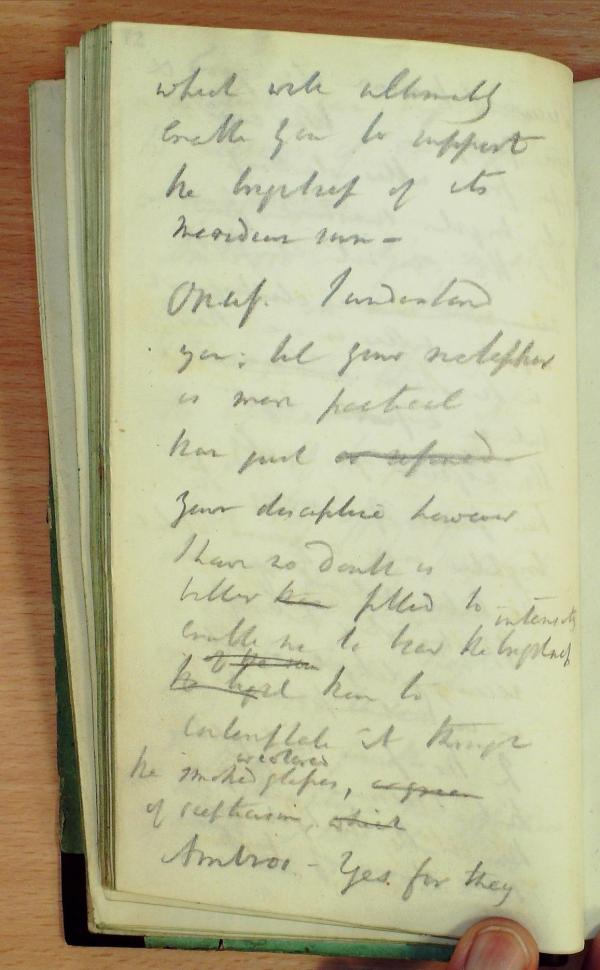 which will ultimately
enable you to support
the brightness of its
meridian sun –
Onup. I understand
you; but your metaphor
is more poetical
than just or refined
Your discipline however
I have no doubt is
better than fitted to
enable me to bear the brightness intensity
of the sun
the light than to
contemplate it through
or colored
the smoked glasses, or green
of scepticism. which
Ambros – Yes for they